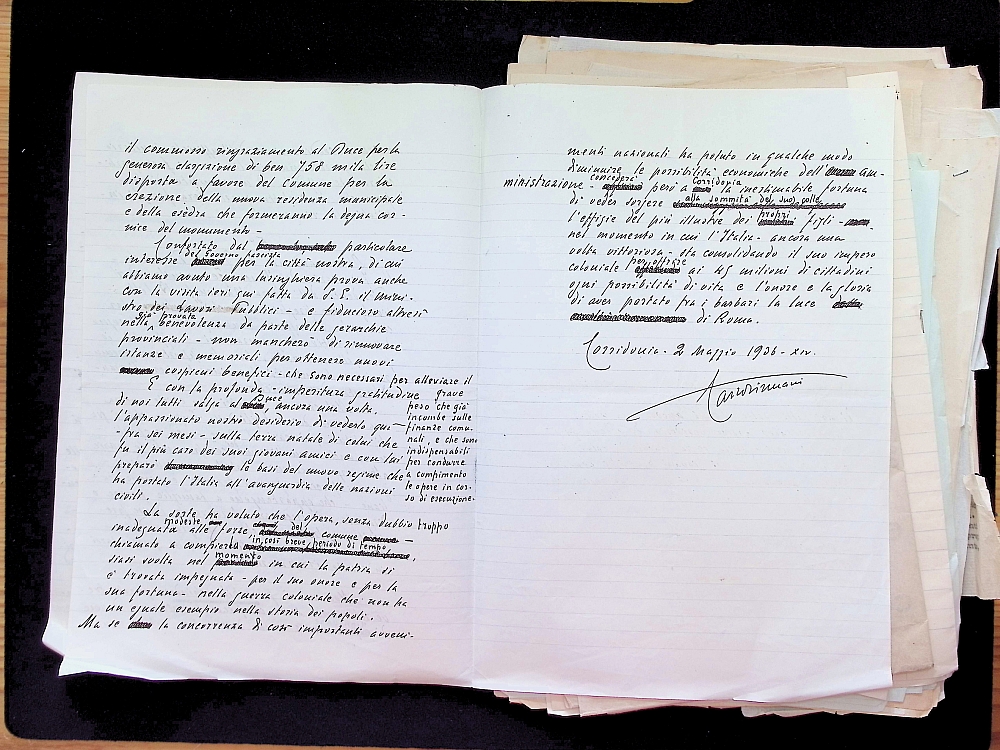 il commosso ringraziamento al Duce per la
generosa elargizione di ben 758 mila lire
disposta a favore del Comune per la
erezione della nuova residenza municipale
e della esedra che formeranno la degna cor-
nice del monumento -
Confortato dal particolare
interesse del Governo fascista per la città nostra, di cui
abbiamo avuto una lusinghiera prova anche
con la visita ieri qui fatta da S. E. il mini-
stro dei Lavori Pubblici - e fiducioso altresì
nella già provata benevolenza da parte delle gerarchie
provinciali - non mancherò di rinnovare
istanze e memoriali per ottenere nuovi
cospicui benefici - che sono necesari per alleviare il
grave
peso che già
incombe sulle
finanze comu-
nali, e che sono
indispensabili
per condurre
a compimento
le opere in cor-
so di esecuzione.
E con la profonda - imperitura gratitudine
di noi tutti salga al Duce, ancora una volta,
l'appassionato nostro desiderio di vederlo qui -
- fra sei mesi - sulla terra natale di colui che
fu il più caro dei suoi giovani amici e con lui
preparò le basi del nuovo regime che
ha portato l'Italia all'avanguardia delle nazioni
civili.
La sorte ha voluto che l'opera, senza dubbio troppo
inadeguata alle modeste forze, del comune -
chiamato a compierla in così breve periodo di tempo,
siasi svolta nel momento in cui la patria si
è trovata impegnata - per il suo onore e per la
sua fortuna - nella guerra coloniale che non ha
un eguale esempio nella storia dei popoli.
Ma se la concorrenza di così importanti avveni-
menti nazionali ha potuto in qualche modo
diminuire le possibilità economiche dell'am-
ministrazione - concederà però a Corridonia la inestimabile fortuna
di veder sorgere alla sommità del suo colle
l'effigie del più illustre dei propri figli -
nel momento in cui l'Italia - ancora una
volta vittoriosa - sta consolidando il suo impero
coloniale per offrire ai 45 milioni di cittadini
ogni possibilità di vita e l'onore e la gloria
di aver portato fra i barbari la luce
di Roma.
Corridonia - 2 Maggio 1936 - XIV.